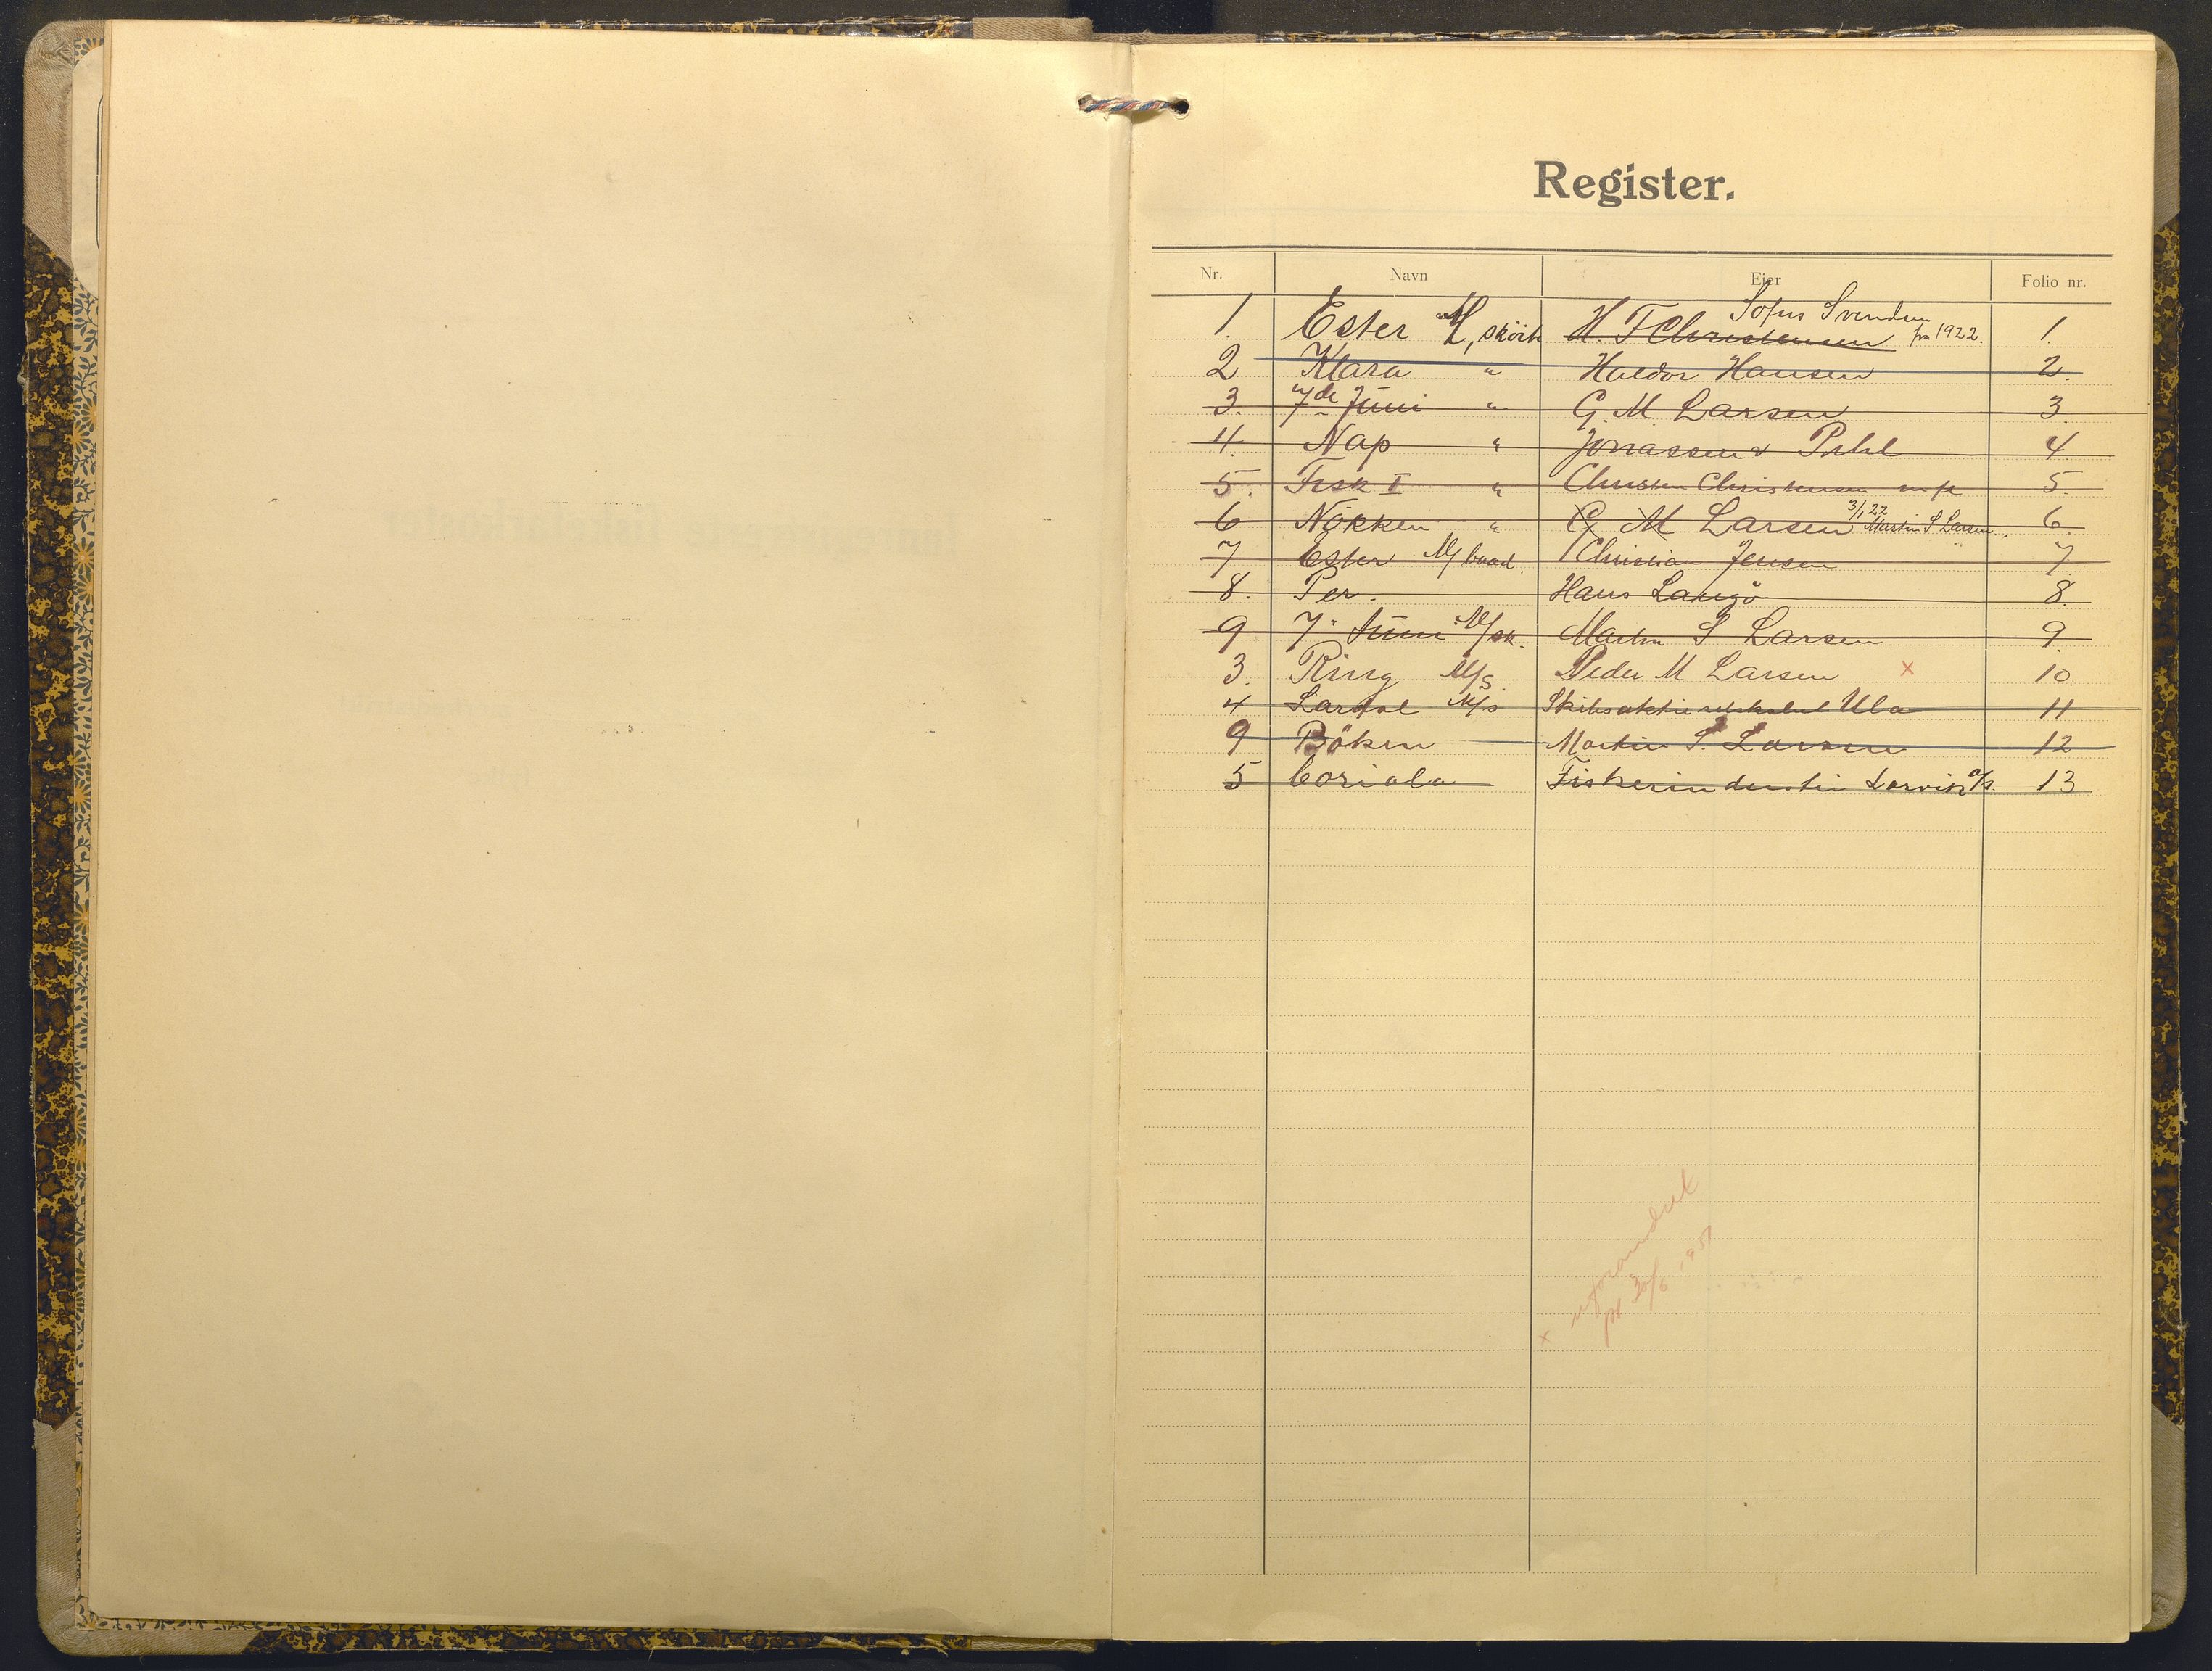 Register.
Nr. Navn Eier Folio nr.
Sofus Svendsen
1. Ester M, sköite H. F Christensen fra 1922. 1.
2 Klara " Haldor Hansen 2.
3. 7de Juni " G. M. Larsen 3
4. Nap " Jonassen & Pihl 4
5. Fisk I " Christen Christensen 5.
3/1 22
6 Nökken " G M Larsen Martin S Larsen. 6.
7 Ester M/baad. Christian Jensen 7
8. Per. Hans Langö 8.
9 7. Juni M/sk. Martin S Larsen 9.
3. Ring M/S. Peder M Larsen x 10.
4 Lardal M/S Skibsaktieselskabet Ula 11
9 Böken Martin S. Larsen 12
5 Coriala Fiskeriindustri Larvik A/S. 13
x uforandret
pr 30/6 1951